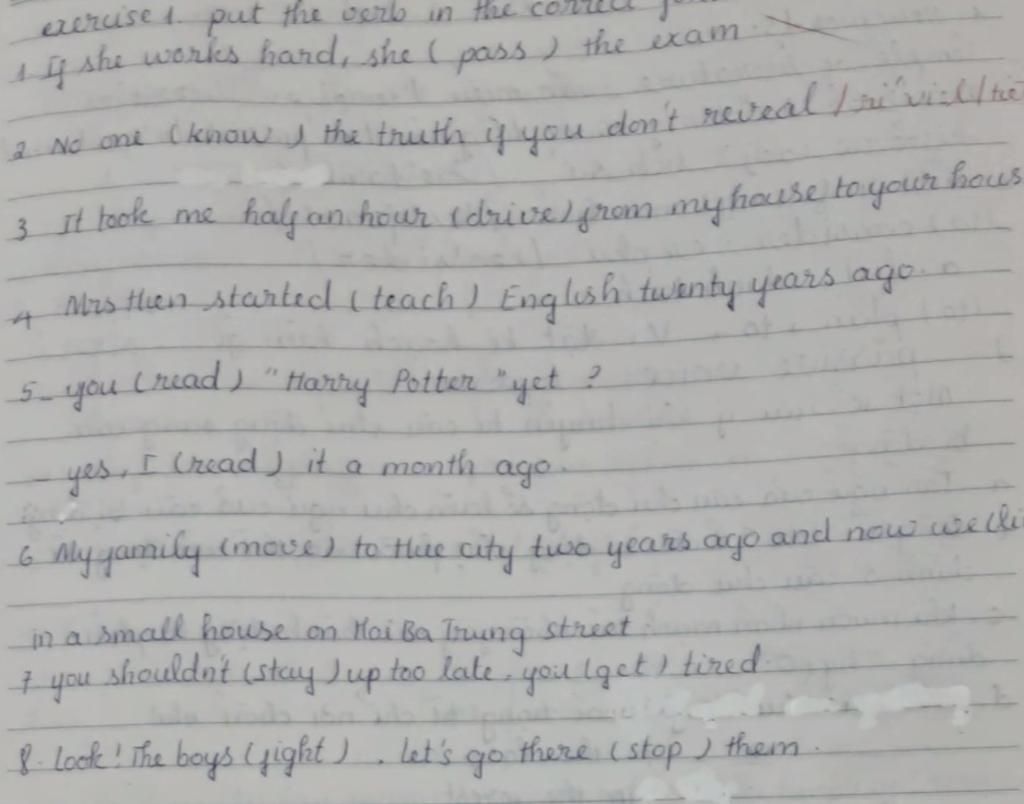 exercise 1. put the verb in the correct
1 If she works hard, she ( pass ) the exam.
2 No one (know) the truth if you don't reveal / ri'vi:l/
3 It took me half an hour (drive) from my house to your hous
4 Mrs Hien started ( teach ) English twenty years ago.
5- you (read) "Harry Potter" yet ?
- yes, I (read) it a month ago.
6 My family (move) to Hue city two years ago and now we (li
in a small house on Hai Ba Trung street.
7 you shouldn't (stay) up too late. you (get) tired.
8. look! The boys (fight). let's go there (stop) them.